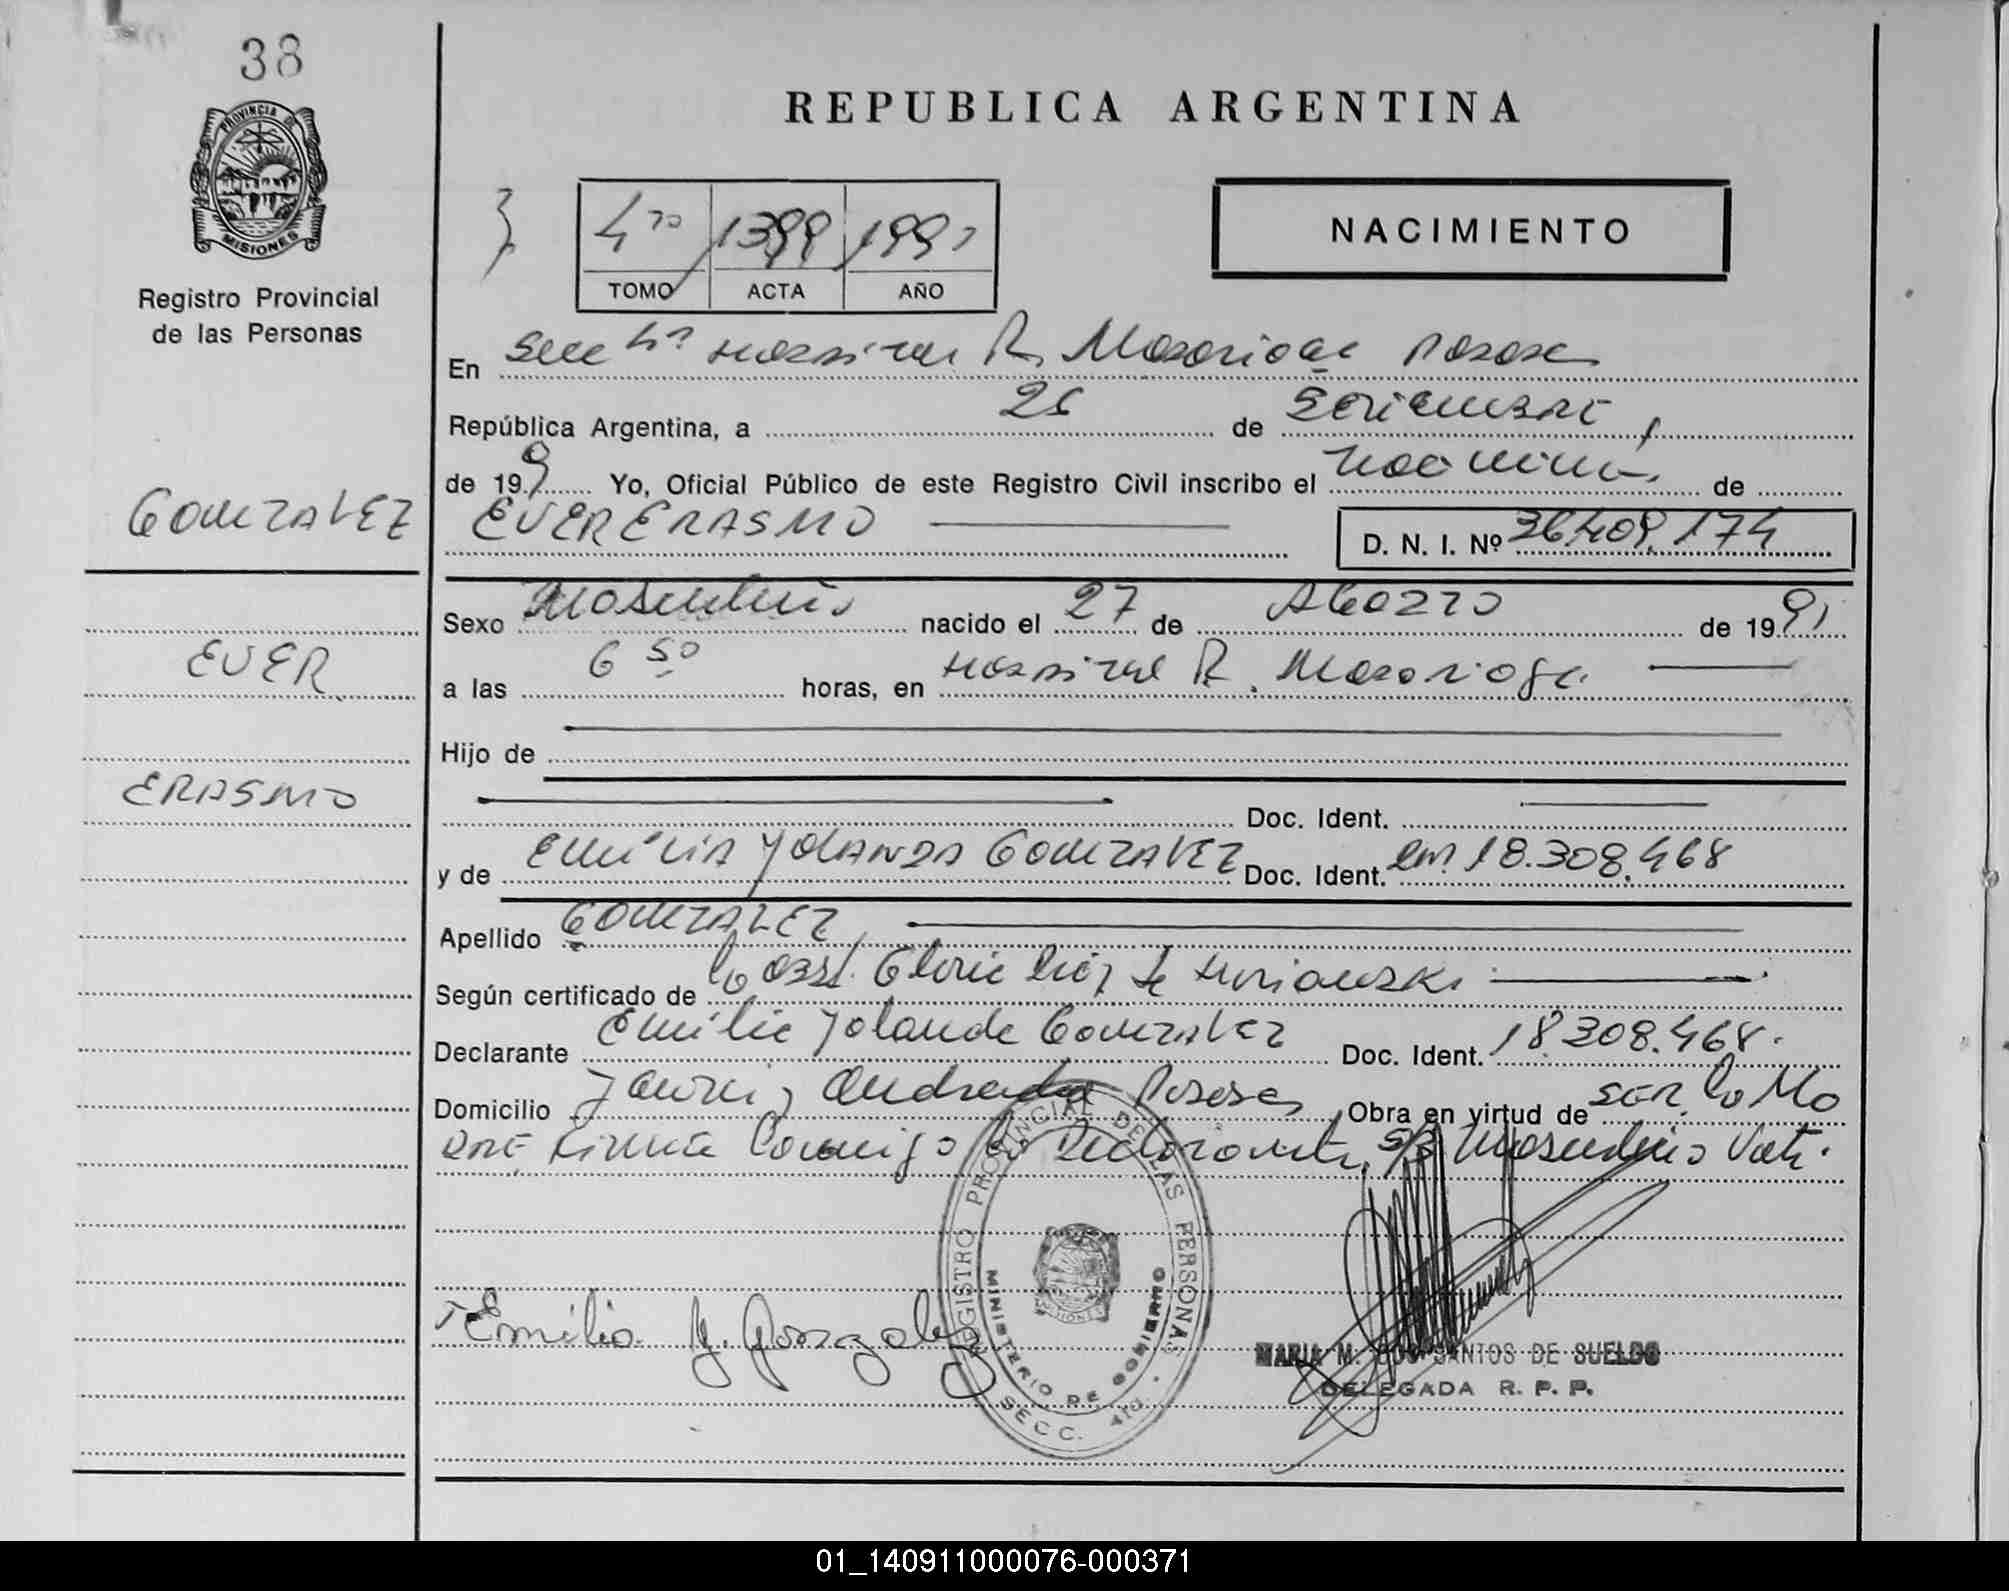 38
REPUBLICA ARGENTINA
PROVINCIA DE
MISIONES
Registro Provincial
de las Personas
4to 1399 1991
TOMO ACTA AÑO
NACIMIENTO
En Secc 4ta Hospital R. Madariaga Posadas
República Argentina, a 26 de Setiembre
de 199 Yo, Oficial Público de este Registro Civil inscribo el nacimiento de
GONZALEZ
EVER ERASMO
D. N. I. Nº 36.409.174
Sexo Masculino nacido el 27 de AGOSTO de 1991
EVER
a las 6 50 horas, en Hospital R. Madariaga
Hijo de
ERASMO
Doc. Ident.
y de EMILIA YOLANDA GONZALEZ Doc. Ident. 18.308.468
Apellido GONZALEZ
Según certificado de Obst. Gloria de
Declarante Emilia Yolanda Gonzalez Doc. Ident. 18.308.468.
Domicilio Andresito Posadas Obra en virtud de ser la Ma
dre Firma Conmigo la Declarante, s/b Masculino Vale.
REGISTRO PROVINCIAL DE LAS PERSONAS
MINISTERIO DE GOBIERNO
SECC. 4ta.
Emilia Y. Gonzalez
MARIA M. DOS SANTOS DE SUELDO
DELEGADA R. P. P.
01_140911000076-000371